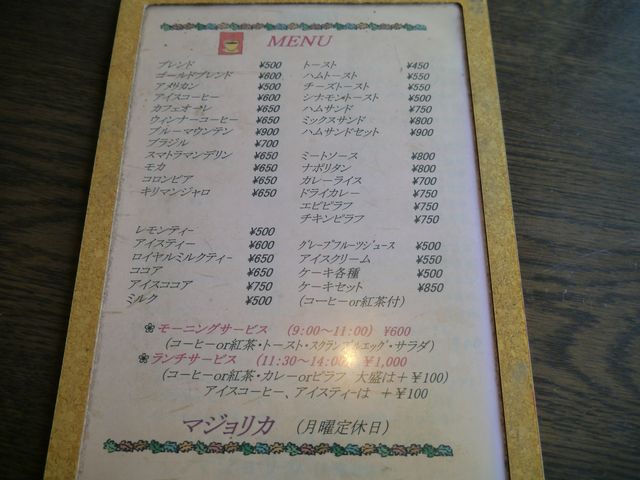 MENU
ブレンド ¥500
ゴールドブレンド ¥600
アメリカン ¥500
アイスコーヒー ¥600
カフェオーレ ¥650
ウィンナーコーヒー ¥650
ブルーマウンテン ¥900
ブラジル ¥700
スマトラマンデリン ¥650
モカ ¥650
コロンビア ¥650
キリマンジャロ ¥650
レモンティー ¥500
アイスティー ¥600
ロイヤルミルクティー ¥650
ココア ¥650
アイスココア ¥750
ミルク ¥500
トースト ¥450
ハムトースト ¥550
チーズトースト ¥550
シナモントースト ¥500
ハムサンド ¥750
ミックスサンド ¥800
ハムサンドセット ¥900
ミートソース ¥800
ナポリタン ¥800
カレーライス ¥700
ドライカレー ¥750
エビピラフ ¥750
チキンピラフ ¥750
グレープフルーツジュース ¥500
アイスクリーム ¥550
ケーキ各種 ¥500
ケーキセット ¥850
(コーヒーor紅茶付)
❀モーニングサービス (9:00~11:00) ¥600
(コーヒーor紅茶・トースト・スクランブルエッグ・サラダ)
❀ランチサービス (11:30~14:00) ¥1,000
(コーヒーor紅茶・カレーorピラフ 大盛は+¥100)
アイスコーヒー、アイスティーは +¥100
マジョリカ (月曜定休日)